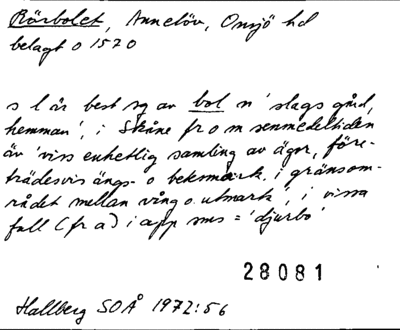 Rörbolet, Annelöv, Onsjö hd
belagt o 1520
s l är best sg av bol n 'slags gård,
hemman', i Skåne fr o m senmedeltiden
äv 'viss enhetlig samling av ägor, före-
trädesvis ängs- o betesmark i gränsom-
rådet mellan vång o. utmark', i vissa
fall (fr a) i app sms = 'djurbo'
28081
Hallberg SOÅ 1972:56